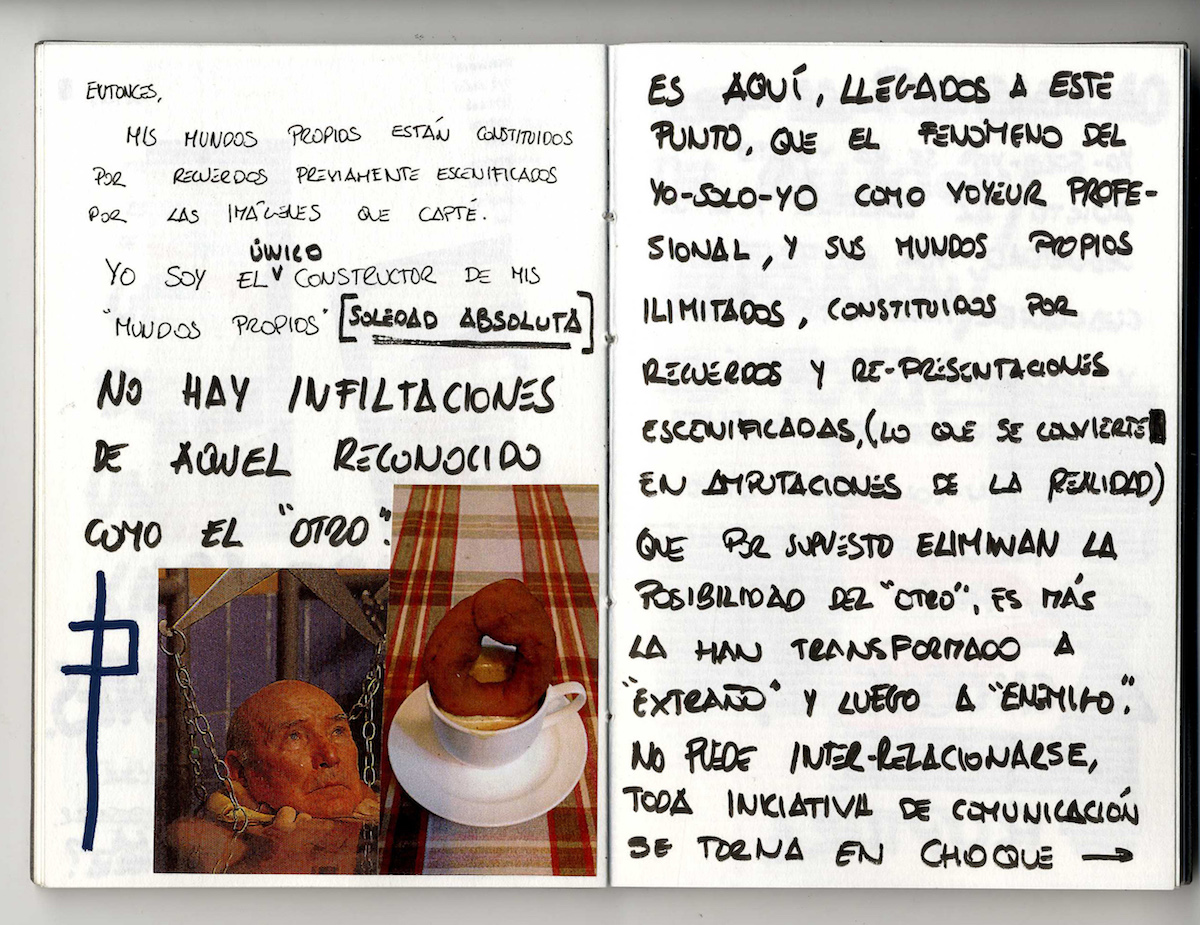 ENTONCES,
MIS MUNDOS PROPIOS ESTÁN CONSTITUIDOS
POR RECUERDOS PREVIAMENTE ESCENIFICADOS
POR LAS IMÁGENES QUE CAPTÉ.
ÚNICO
YO SOY EL ˅ CONSTRUCTOR DE MIS
"MUNDOS PROPIOS" [SOLEDAD ABSOLUTA]
NO HAY INFILTACIONES
DE AQUEL RECONOCIDO
COMO EL "OTRO".
ES AQUÍ, LLEGADOS A ESTE
PUNTO, QUE EL FENÓMENO DEL
YO-SOLO-YO COMO VOYEUR PROFE-
SIONAL, Y SUS MUNDOS PROPIOS
ILIMITADOS, CONSTITUIDOS POR
RECUERDOS Y RE-PRESENTACIONES
ESCENIFICADAS, (LO QUE SE CONVIERTE
EN AMPUTACIONES DE LA REALIDAD)
QUE POR SUPUESTO ELIMINAN LA
POSIBILIDAD DEL "OTRO", ES MÁS
LA HAN TRANSFORMADO A
"EXTRAÑO" Y LUEGO A "ENEMIGO".
NO PUEDE INTER-RELACIONARSE,
TODA INICIATIVA DE COMUNICACIÓN
SE TORNA EN CHOQUE →